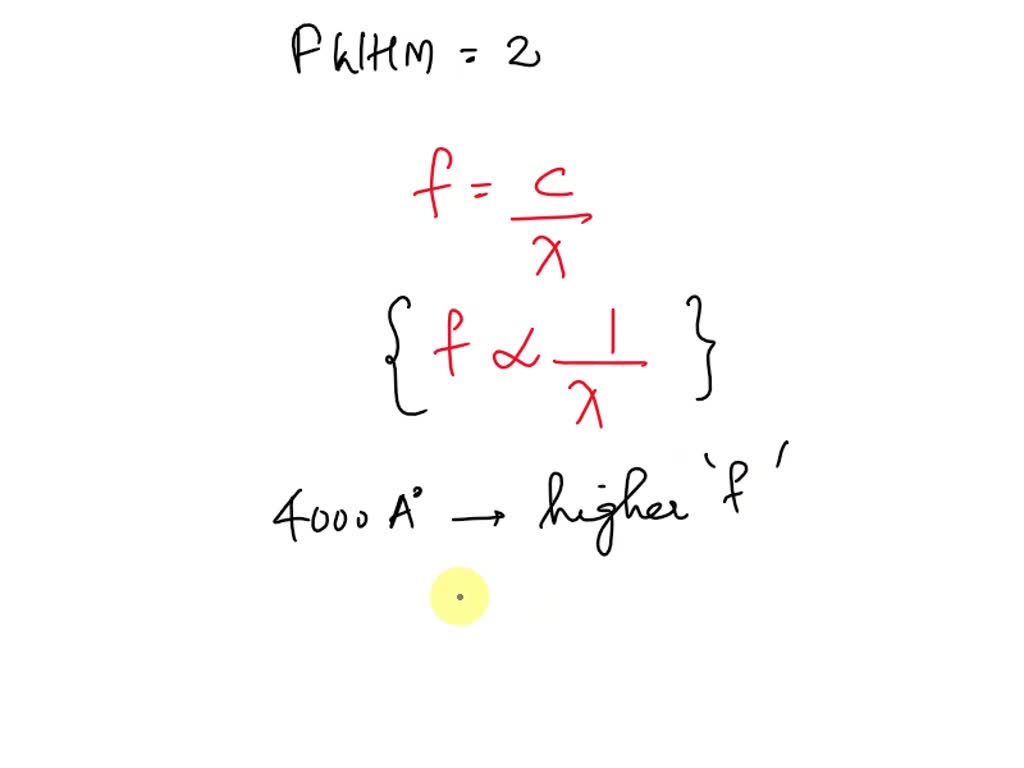 FWHM = 2
f = c
λ
{ f ∝ 1 }
λ
4000 A° → higher 'f'